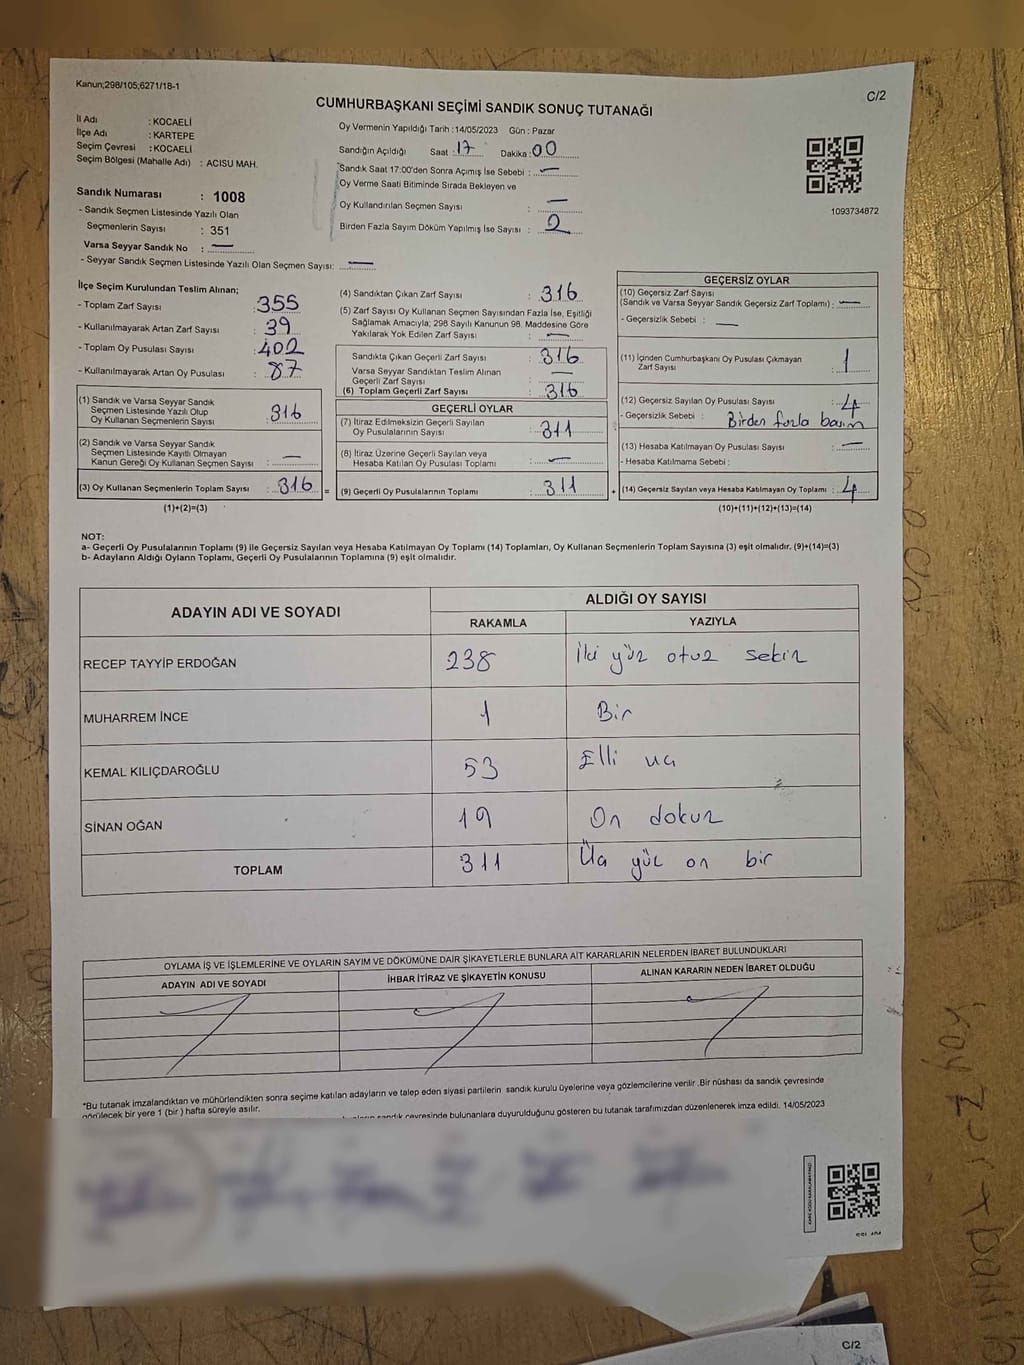 Kanun;298/105;6271/18-1
C/2
CUMHURBAŞKANI SEÇİMİ SANDIK SONUÇ TUTANAĞI
İl Adı : KOCAELİ
İlçe Adı : KARTEPE
Seçim Çevresi : KOCAELİ
Seçim Bölgesi (Mahalle Adı) : ACISU MAH.
Oy Vermenin Yapıldığı Tarih : 14/05/2023 Gün : Pazar
Sandığın Açıldığı Saat : 17 Dakika : 00
Sandık Saat 17:00'den Sonra Açımış İse Sebebi : —
Oy Verme Saati Bitiminde Sırada Bekleyen ve
Oy Kullandırılan Seçmen Sayısı : —
Birden Fazla Sayım Döküm Yapılmış İse Sayısı : 2
1093734872
Sandık Numarası : 1008
- Sandık Seçmen Listesinde Yazılı Olan
Seçmenlerin Sayısı : 351
Varsa Seyyar Sandık No : —
- Seyyar Sandık Seçmen Listesinde Yazılı Olan Seçmen Sayısı: —
İlçe Seçim Kurulundan Teslim Alınan;
- Toplam Zarf Sayısı : 355
- Kullanılmayarak Artan Zarf Sayısı : 39
- Toplam Oy Pusulası Sayısı : 402
- Kullanılmayarak Artan Oy Pusulası : 87
(1) Sandık ve Varsa Seyyar Sandık
Seçmen Listesinde Yazılı Olup
Oy Kullanan Seçmenlerin Sayısı : 316
(2) Sandık ve Varsa Seyyar Sandık
Seçmen Listesinde Kayıtlı Olmayan
Kanun Gereği Oy Kullanan Seçmen Sayısı : —
(3) Oy Kullanan Seçmenlerin Toplam Sayısı : 316 =
(1)+(2)=(3)
(4) Sandıktan Çıkan Zarf Sayısı : 316
(5) Zarf Sayısı Oy Kullanan Seçmen Sayısından Fazla İse, Eşitliği
Sağlamak Amacıyla; 298 Sayılı Kanunun 98. Maddesine Göre
Yakılarak Yok Edilen Zarf Sayısı : —
Sandıkta Çıkan Geçerli Zarf Sayısı : 316
Varsa Seyyar Sandıktan Teslim Alınan
Geçerli Zarf Sayısı : —
(6) Toplam Geçerli Zarf Sayısı : 316
GEÇERLİ OYLAR
(7) İtiraz Edilmeksizin Geçerli Sayılan
Oy Pusulalarının Sayısı : 311
(8) İtiraz Üzerine Geçerli Sayılan veya
Hesaba Katılan Oy Pusulası Toplamı : —
(9) Geçerli Oy Pusulalarının Toplamı : 311 +
GEÇERSİZ OYLAR
(10) Geçersiz Zarf Sayısı
(Sandık ve Varsa Seyyar Sandık Geçersiz Zarf Toplamı) : —
- Geçersizlik Sebebi : —
(11) İçinden Cumhurbaşkanı Oy Pusulası Çıkmayan
Zarf Sayısı : 1
(12) Geçersiz Sayılan Oy Pusulası Sayısı : 4
- Geçersizlik Sebebi : Birden fazla basım
(13) Hesaba Katılmayan Oy Pusulası Sayısı : —
- Hesaba Katılmama Sebebi :
(14) Geçersiz Sayılan veya Hesaba Katılmayan Oy Toplamı : 4
(10)+(11)+(12)+(13)=(14)
NOT:
a- Geçerli Oy Pusulalarının Toplamı (9) ile Geçersiz Sayılan veya Hesaba Katılmayan Oy Toplamı (14) Toplamları, Oy Kullanan Seçmenlerin Toplam Sayısına (3) eşit olmalıdır. (9)+(14)=(3)
b- Adayların Aldığı Oyların Toplamı, Geçerli Oy Pusulalarının Toplamına (9) eşit olmalıdır.
ADAYIN ADI VE SOYADI
ALDIĞI OY SAYISI
RAKAMLA YAZIYLA
RECEP TAYYİP ERDOĞAN 238 İki yüz otuz sekiz
MUHARREM İNCE 1 Bir
KEMAL KILIÇDAROĞLU 53 Elli üç
SİNAN OĞAN 19 On dokuz
TOPLAM 311 Üç yüz on bir
OYLAMA İŞ VE İŞLEMLERİNE VE OYLARIN SAYIM VE DÖKÜMÜNE DAİR ŞİKAYETLERLE BUNLARA AİT KARARLARIN NELERDEN İBARET BULUNDUKLARI
ADAYIN ADI VE SOYADI İHBAR İTİRAZ VE ŞİKAYETİN KONUSU ALINAN KARARIN NEDEN İBARET OLDUĞU
*Bu tutanak imzalandıktan ve mühürlendikten sonra seçime katılan adayların ve talep eden siyasi partilerin sandık kurulu üyelerine veya gözlemcilerine verilir .Bir nüshası da sandık çevresinde
görülecek bir yere 1 (bir ) hafta süreyle asılır.
sandık çevresinde bulunanlara duyurulduğunu gösteren bu tutanak tarafımızdan düzenlenerek imza edildi. 14/05/2023
C/2